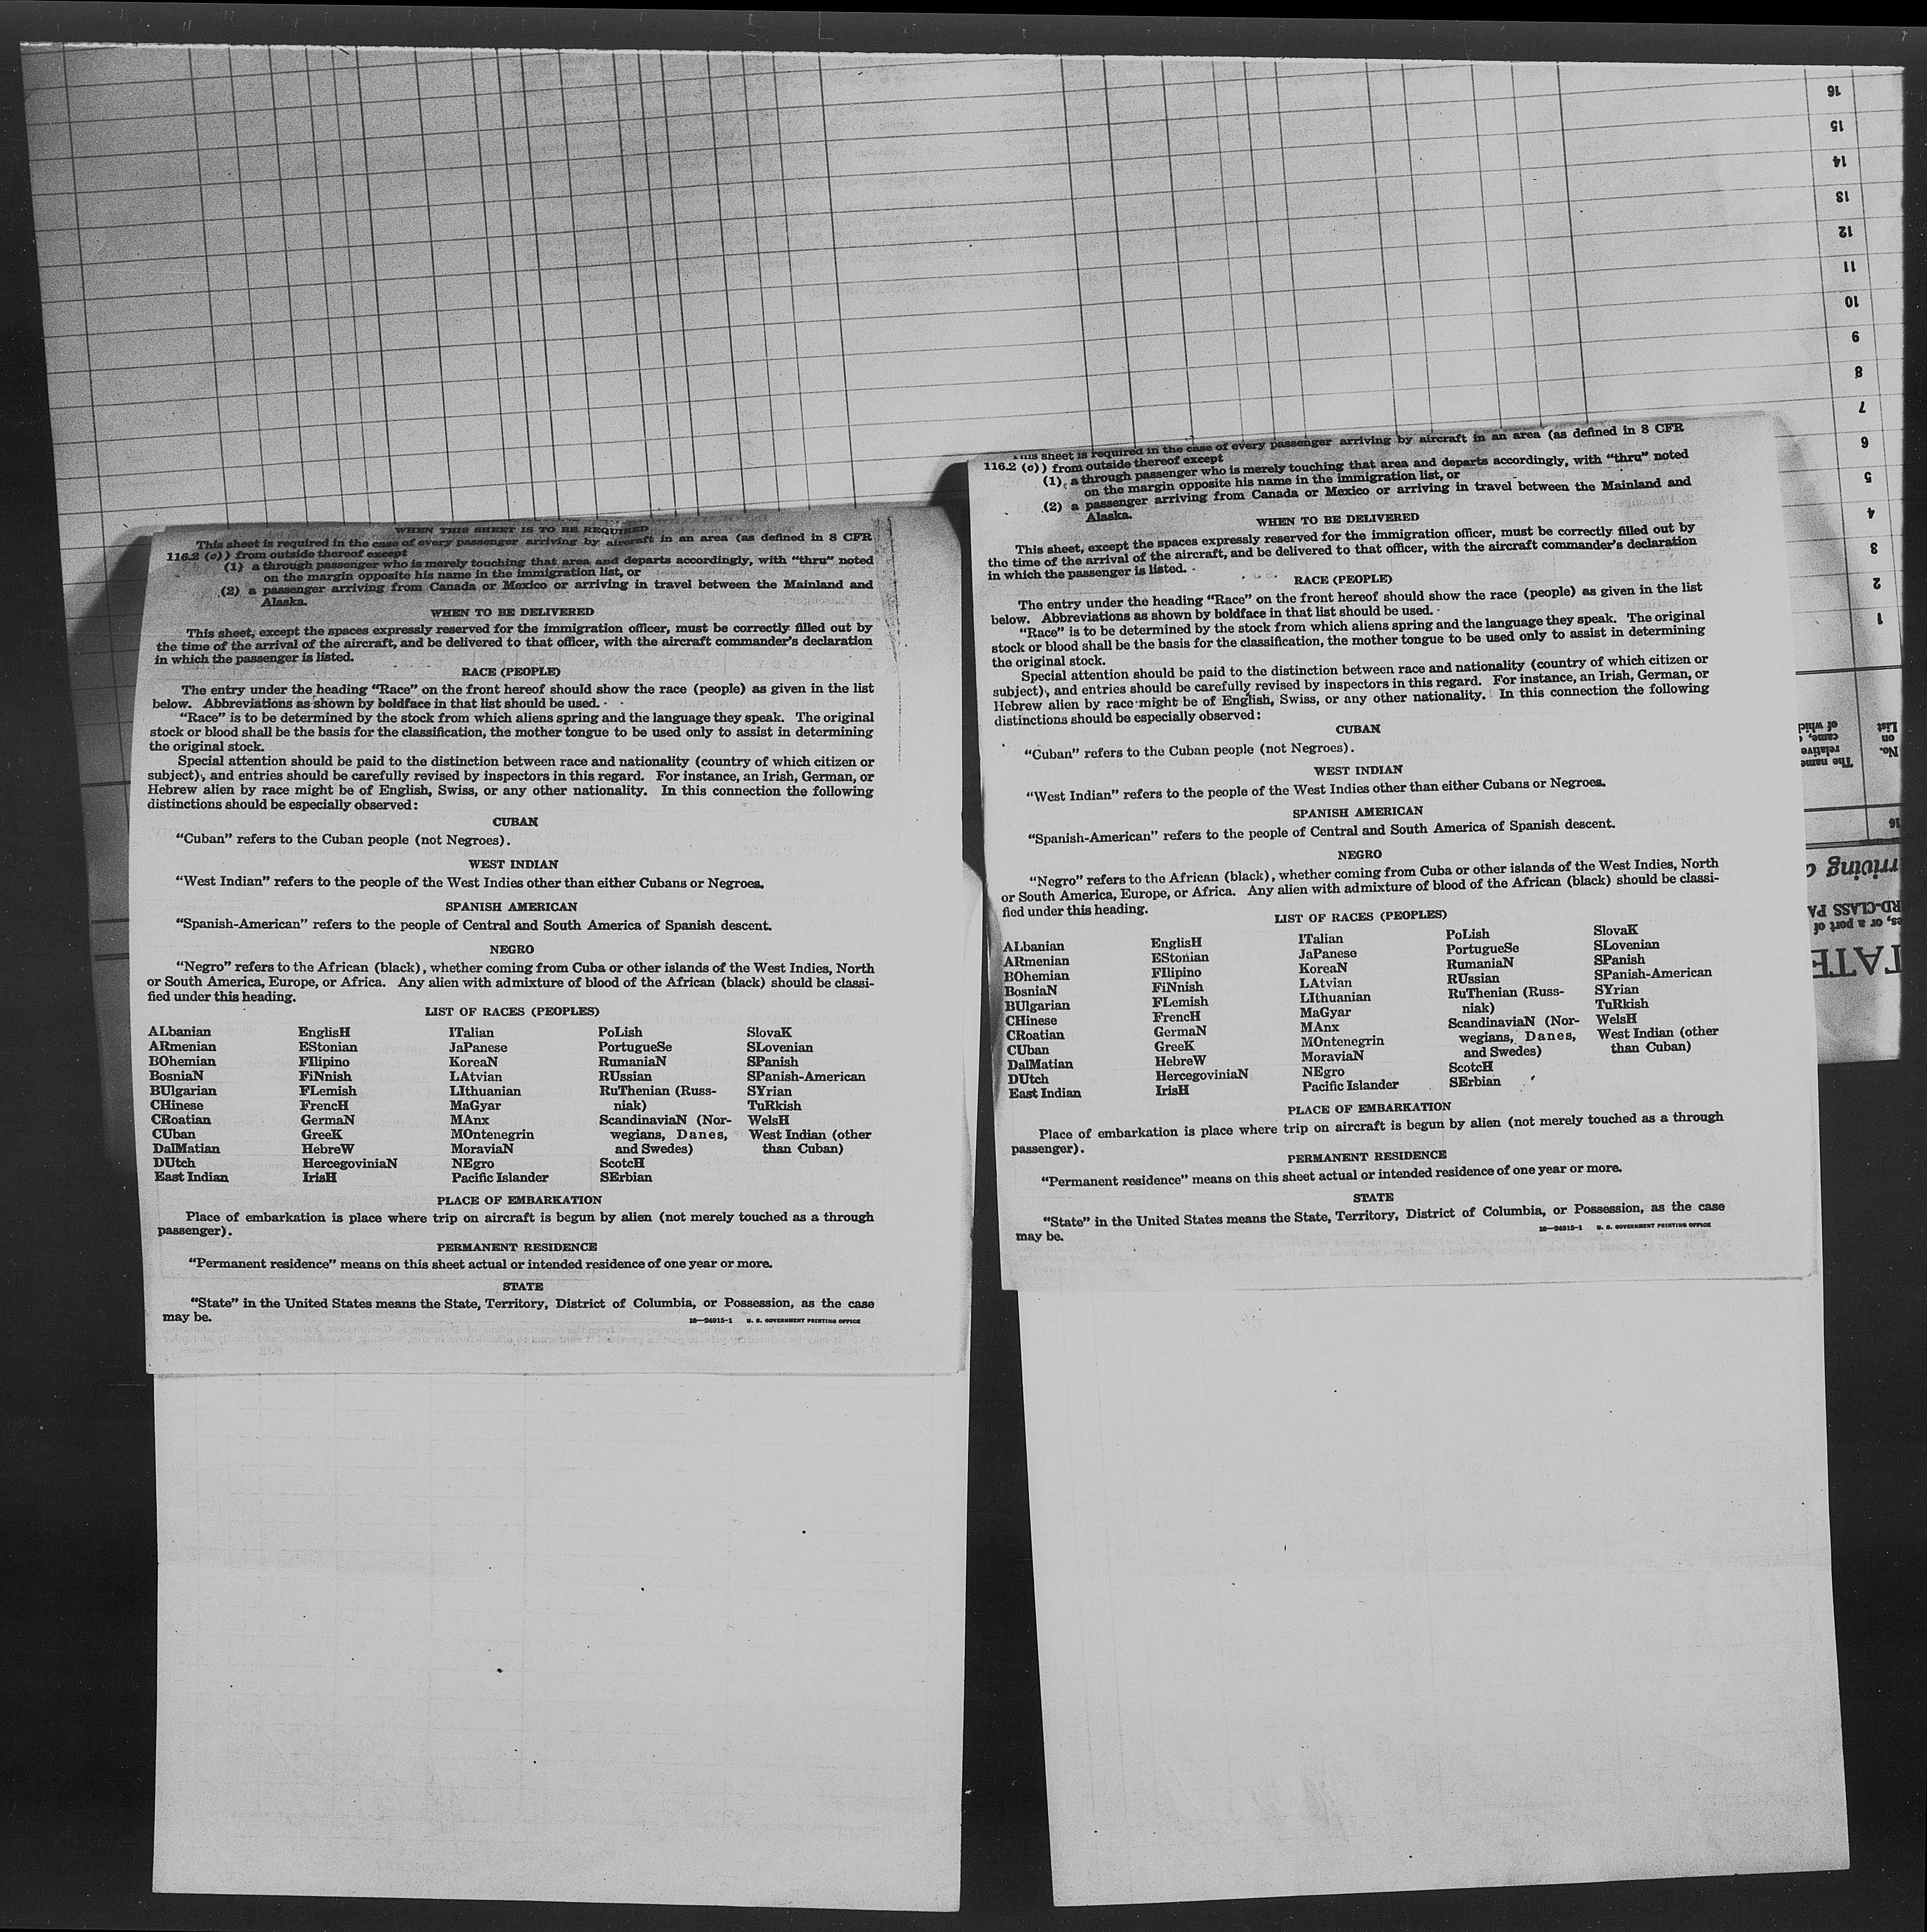 WHEN THIS SHEET IS TO BE REQUIRED
This sheet is required in the case of every passenger arriving by aircraft in an area (as defined in 8 CFR
116.2 (c)) from outside thereof except
(1) a through passenger who is merely touching that area and departs accordingly, with "thru" noted
on the margin opposite his name in the immigration list, or
(2) a passenger arriving from Canada or Mexico or arriving in travel between the Mainland and
Alaska.
WHEN TO BE DELIVERED
This sheet, except the spaces expressly reserved for the immigration officer, must be correctly filled out by
the time of the arrival of the aircraft, and be delivered to that officer, with the aircraft commander's declaration
in which the passenger is listed.
RACE (PEOPLE)
The entry under the heading "Race" on the front hereof should show the race (people) as given in the list
below. Abbreviations as shown by boldface in that list should be used.
"Race" is to be determined by the stock from which aliens spring and the language they speak. The original
stock or blood shall be the basis for the classification, the mother tongue to be used only to assist in determining
the original stock.
Special attention should be paid to the distinction between race and nationality (country of which citizen or
subject), and entries should be carefully revised by inspectors in this regard. For instance, an Irish, German, or
Hebrew alien by race might be of English, Swiss, or any other nationality. In this connection the following
distinctions should be especially observed:
CUBAN
"Cuban" refers to the Cuban people (not Negroes).
WEST INDIAN
"West Indian" refers to the people of the West Indies other than either Cubans or Negroes.
SPANISH AMERICAN
"Spanish-American" refers to the people of Central and South America of Spanish descent.
NEGRO
"Negro" refers to the African (black), whether coming from Cuba or other islands of the West Indies, North
or South America, Europe, or Africa. Any alien with admixture of blood of the African (black) should be classi-
fied under this heading.
LIST OF RACES (PEOPLES)
ALbanian
ARmenian
BOhemian
BosniaN
BUlgarian
CHinese
CRoatian
CUban
DalMatian
DUtch
East Indian
EnglisH
EStonian
FIlipino
FiNnish
FLemish
FrencH
GermaN
GreeK
HebreW
HercegoviniaN
IrisH
ITalian
JaPanese
KoreaN
LAtvian
LIthuanian
MaGyar
MAnx
MOntenegrin
MoraviaN
NEgro
Pacific Islander
PoLish
PortugueSe
RumaniaN
RUssian
RuThenian (Russ-
niak)
ScandinaviaN (Nor-
wegians, Danes,
and Swedes)
ScotcH
SErbian
SlovaK
SLovenian
SPanish
SPanish-American
SYrian
TuRkish
WelsH
West Indian (other
than Cuban)
PLACE OF EMBARKATION
Place of embarkation is place where trip on aircraft is begun by alien (not merely touched as a through
passenger).
PERMANENT RESIDENCE
"Permanent residence" means on this sheet actual or intended residence of one year or more.
STATE
"State" in the United States means the State, Territory, District of Columbia, or Possession, as the case
may be.
16—24915-1 U. S. GOVERNMENT PRINTING OFFICE
This sheet is required in the case of every passenger arriving by aircraft in an area (as defined in 8 CFR
116.2 (c)) from outside thereof except
(1) a through passenger who is merely touching that area and departs accordingly, with "thru" noted
on the margin opposite his name in the immigration list, or
(2) a passenger arriving from Canada or Mexico or arriving in travel between the Mainland and
Alaska.
WHEN TO BE DELIVERED
This sheet, except the spaces expressly reserved for the immigration officer, must be correctly filled out by
the time of the arrival of the aircraft, and be delivered to that officer, with the aircraft commander's declaration
in which the passenger is listed.
RACE (PEOPLE)
The entry under the heading "Race" on the front hereof should show the race (people) as given in the list
below. Abbreviations as shown by boldface in that list should be used.
"Race" is to be determined by the stock from which aliens spring and the language they speak. The original
stock or blood shall be the basis for the classification, the mother tongue to be used only to assist in determining
the original stock.
Special attention should be paid to the distinction between race and nationality (country of which citizen or
subject), and entries should be carefully revised by inspectors in this regard. For instance, an Irish, German, or
Hebrew alien by race might be of English, Swiss, or any other nationality. In this connection the following
distinctions should be especially observed:
CUBAN
"Cuban" refers to the Cuban people (not Negroes).
WEST INDIAN
"West Indian" refers to the people of the West Indies other than either Cubans or Negroes.
SPANISH AMERICAN
"Spanish-American" refers to the people of Central and South America of Spanish descent.
NEGRO
"Negro" refers to the African (black), whether coming from Cuba or other islands of the West Indies, North
or South America, Europe, or Africa. Any alien with admixture of blood of the African (black) should be classi-
fied under this heading.
LIST OF RACES (PEOPLES)
ALbanian
ARmenian
BOhemian
BosniaN
BUlgarian
CHinese
CRoatian
CUban
DalMatian
DUtch
East Indian
EnglisH
EStonian
FIlipino
FiNnish
FLemish
FrencH
GermaN
GreeK
HebreW
HercegoviniaN
IrisH
ITalian
JaPanese
KoreaN
LAtvian
LIthuanian
MaGyar
MAnx
MOntenegrin
MoraviaN
NEgro
Pacific Islander
PoLish
PortugueSe
RumaniaN
RUssian
RuThenian (Russ-
niak)
ScandinaviaN (Nor-
wegians, Danes,
and Swedes)
ScotcH
SErbian
SlovaK
SLovenian
SPanish
SPanish-American
SYrian
TuRkish
WelsH
West Indian (other
than Cuban)
PLACE OF EMBARKATION
Place of embarkation is place where trip on aircraft is begun by alien (not merely touched as a through
passenger).
PERMANENT RESIDENCE
"Permanent residence" means on this sheet actual or intended residence of one year or more.
STATE
"State" in the United States means the State, Territory, District of Columbia, or Possession, as the case
may be.
16—24915-1 U. S. GOVERNMENT PRINTING OFFICE
TATE
es, or a port of
RD-CLASS PA
rriving a
16
No.
on
List
The name
relative
came,
of which
1
2
3
4
5
6
7
8
9
10
11
12
13
14
15
16